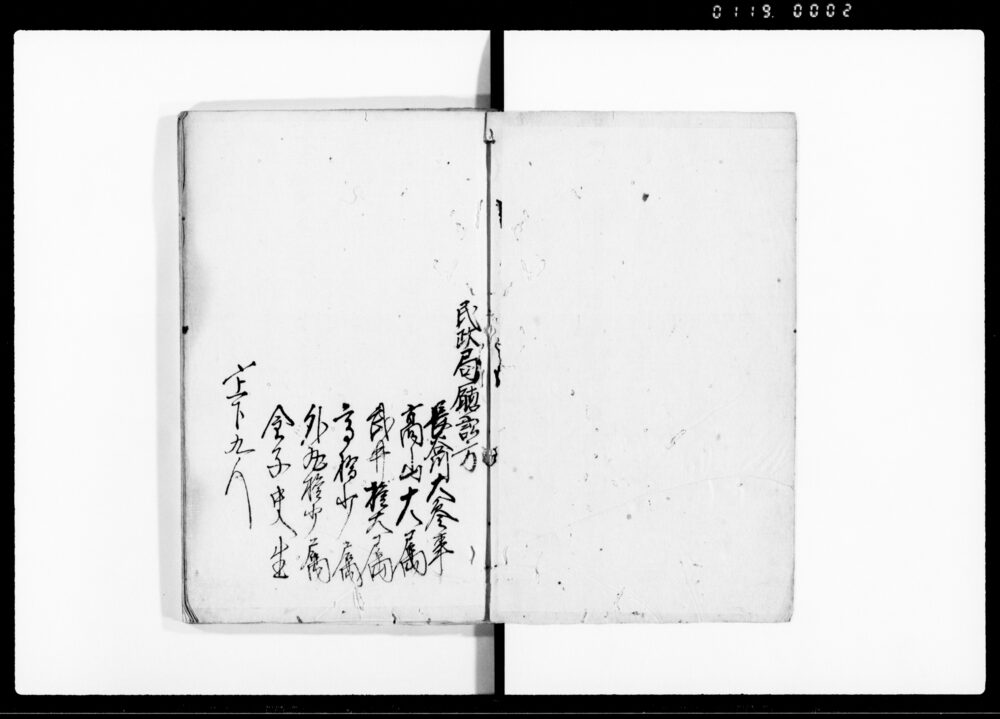 0119. 0002
民政局聴訟方
長斎大参事
高山大属
武井権大属
高橋少属
外丸権少属
金子史生
〆上下九人